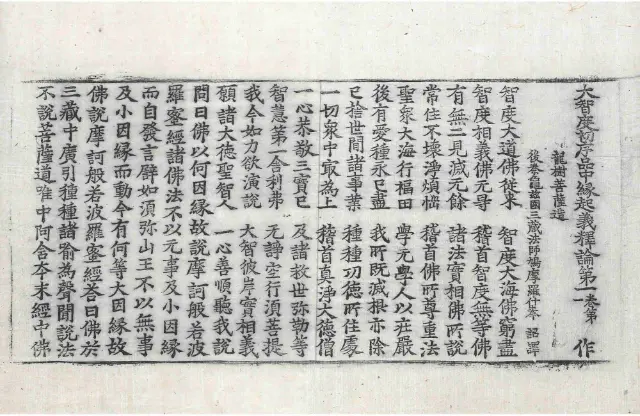 大智度初序品中緣起義釋論第一 卷第一 作
龍樹菩薩造
後秦龜茲國三藏法師鳩摩羅什奉 詔譯
智度大道佛從來 智度大海佛窮盡
智度相義佛无㝵 稽首智度無等佛
有無二見滅无餘 諸法實相佛所說
常住不壞淨煩惱 稽首佛所尊重法
聖衆大海行福田 學无學人以莊嚴
後有愛種永已盡 我所既滅根亦除
已捨世間諸事業 種種功德所住處
一切衆中最為上 稽首真淨大德僧
一心恭敬三寶已 及諸救世弥勒等
智慧第一舍利弗 无諍空行須菩提
我今如力欲演說 大智彼岸實相義
願諸大德聖智人 一心善順聽我說
問曰佛以何因緣故說摩訶般若波
羅蜜經諸佛法不以无事及小因緣
而自發言譬如須弥山王不以無事
及小因緣而動今有何等大因緣故
佛說摩訶般若波羅蜜經荅曰佛於
三藏中廣引種種諸喻為聲聞說法
不說菩薩道唯中阿含本末經中佛